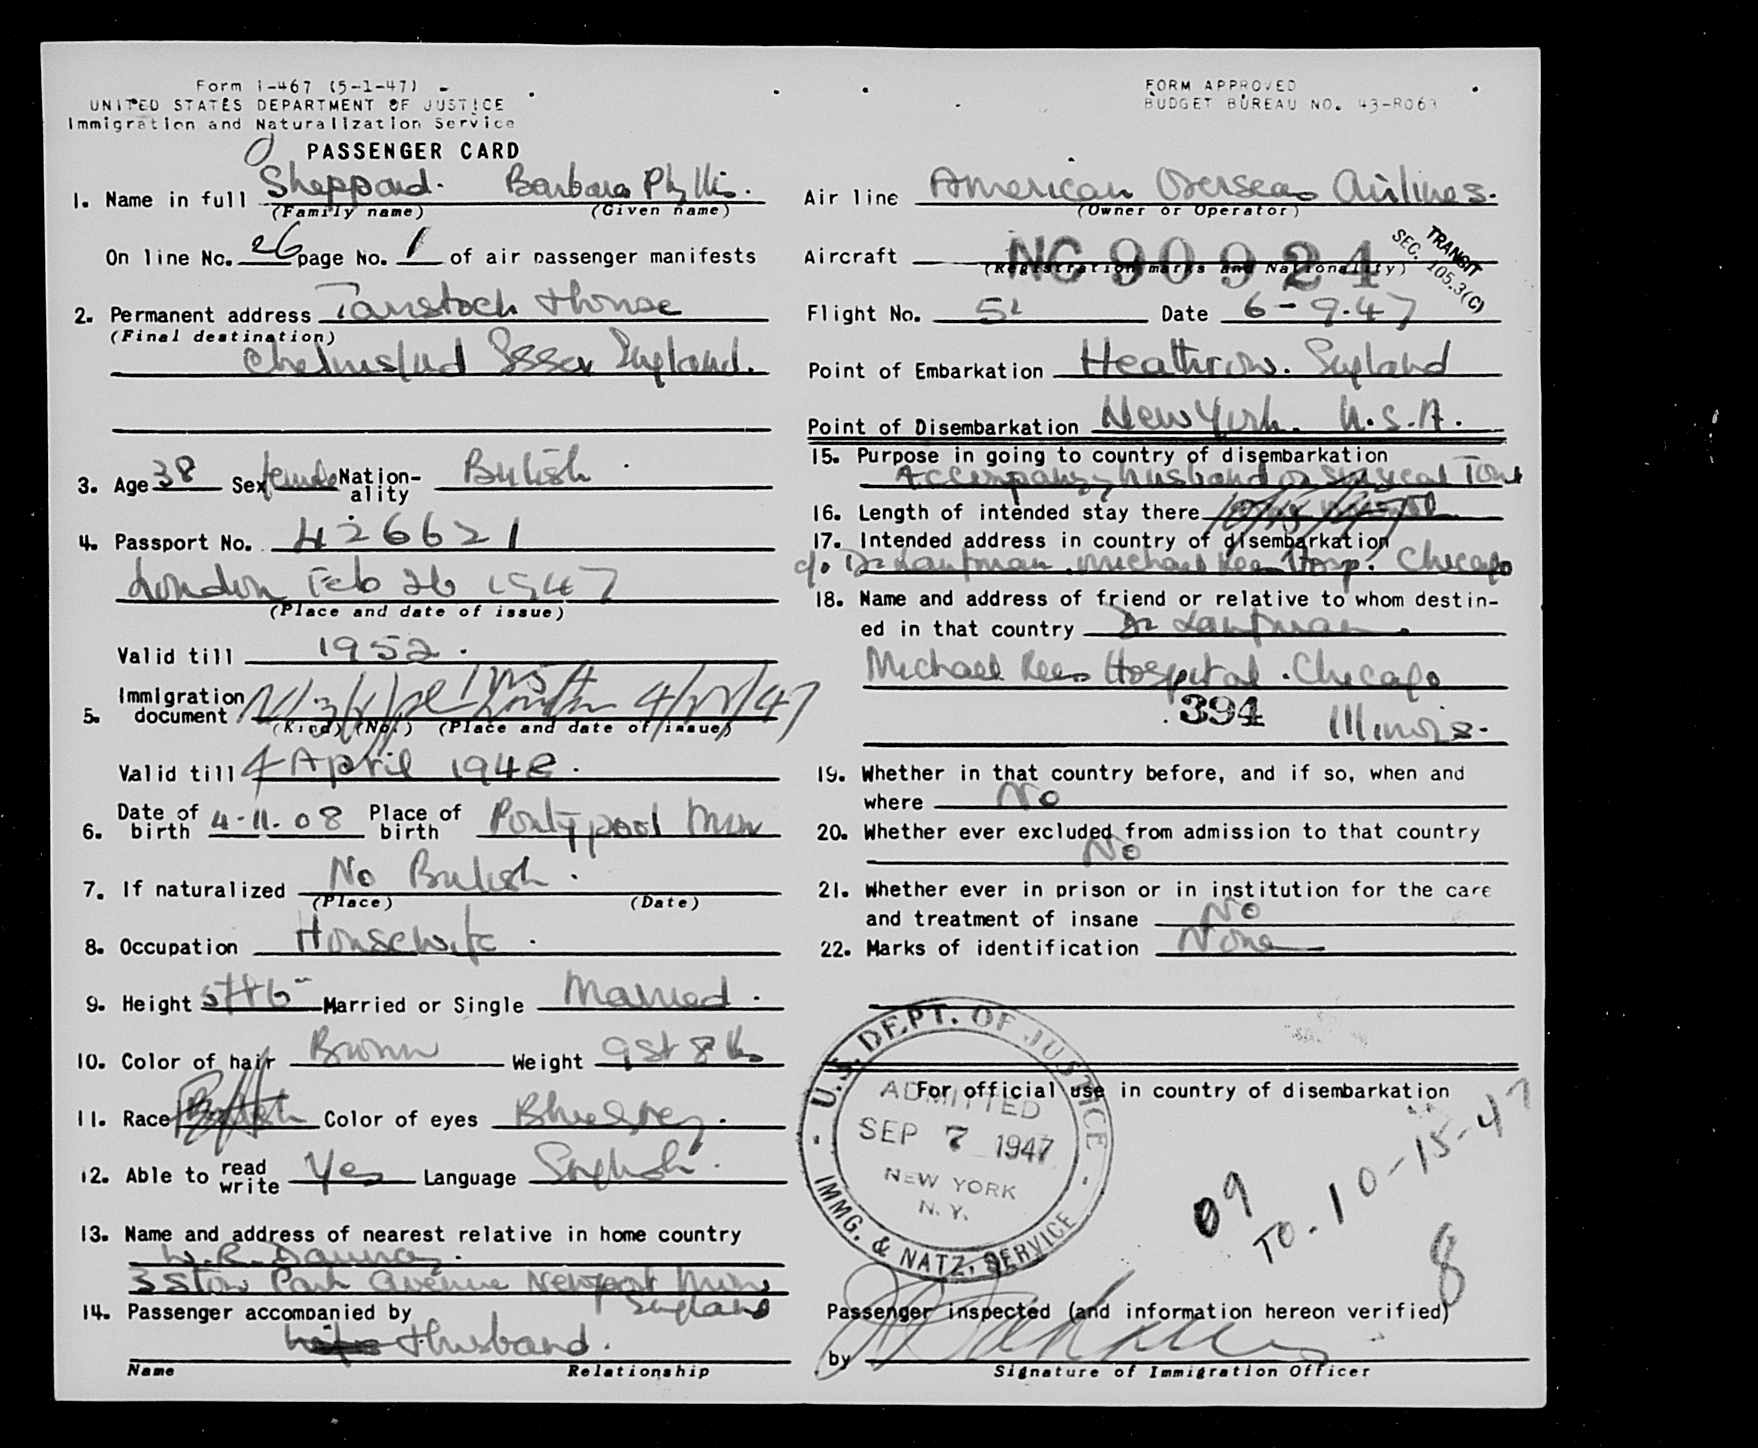 Form I-467 (5-1-47)
UNITED STATES DEPARTMENT OF JUSTICE
Immigration and Naturalization Service
PASSENGER CARD
1. Name in full Sheppard. Barbara Phyllis.
(Family name) (Given name)
On line No. 26 page No. 1 of air passenger manifests
2. Permanent address House
(Final destination)
Chelmsford Essex England.
3. Age 38 Sex female Nation-ality British
4. Passport No. 426621
London Feb 26 1947
(Place and date of issue)
Valid till 1952.
5. Immigration document 4/ /47
(Kind) (No.) (Place and date of issue)
Valid till 4 April 1948.
6. Date of birth 4-11-08 Place of birth Pontypool Mon
7. If naturalized No British.
(Place) (Date)
8. Occupation Housewife.
9. Height 5ft 6" Married or Single Married.
10. Color of hair Brown Weight 9st 8 lbs
11. Race British Color of eyes Blue Grey.
12. Able to read write Yes Language English.
13. Name and address of nearest relative in home country
W.R.
3 Stow Park Avenue Newport Mon
England
14. Passenger accompanied by
Husband.
Name Relationship
FORM APPROVED
BUDGET BUREAU NO. 43-R063
Air line American Overseas Airlines.
(Owner or Operator)
Aircraft NC 90924
(Registration marks and Nationality)
TRANSIT
SEC. 105.3(C)
Flight No. Date 6-9-47
Point of Embarkation Heathrow. England
Point of Disembarkation New York. U.S.A.
15. Purpose in going to country of disembarkation
Accompany husband on surgical Tour
16. Length of intended stay there
17. Intended address in country of disembarkation
c/o Dr Kaufman. Michael Rees Hosp. Chicago
18. Name and address of friend or relative to whom destin-
ed in that country Dr Kaufman.
Michael Rees Hospital. Chicago
394 Illinois.
19. Whether in that country before, and if so, when and
where No
20. Whether ever excluded from admission to that country
No
21. Whether ever in prison or in institution for the care
and treatment of insane No
22. Marks of identification None
For official use in country of disembarkation
U.S. DEPT. OF JUSTICE
ADMITTED
SEP 7 1947
NEW YORK
N. Y.
IMMG. & NATZ. SERVICE
09
TO-10-15-47
8
Passenger inspected (and information hereon verified)
by
Signature of Immigration Officer